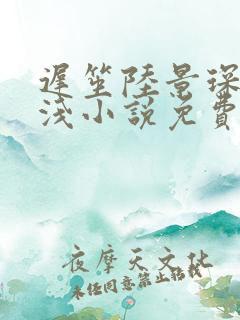 遲笙陸景琛
淺小說免費
夜摩天文化
未經同意禁止轉載